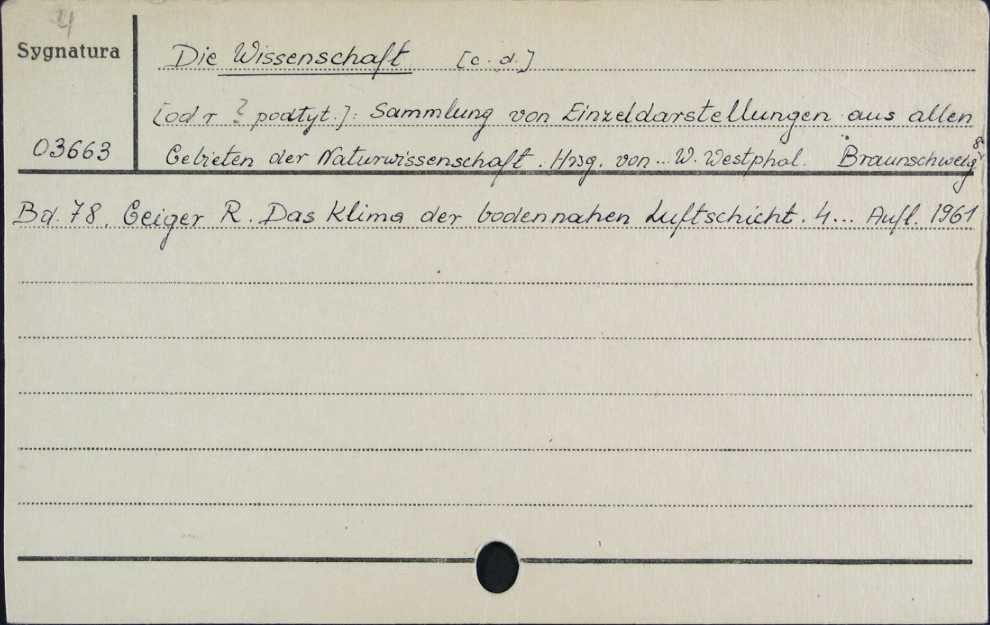 4
Sygnatura
Die Wissenschaft [c. d.]
[od r ? podtyt.]: Sammlung von Einzeldarstellungen aus allen
03663
Gebieten der Naturwissenschaft. Hrsg. von... W. Westphal. Braunschweig
Bd. 78. Geiger R. Das Klima der bodennahen Luftschicht. 4... Aufl. 1961